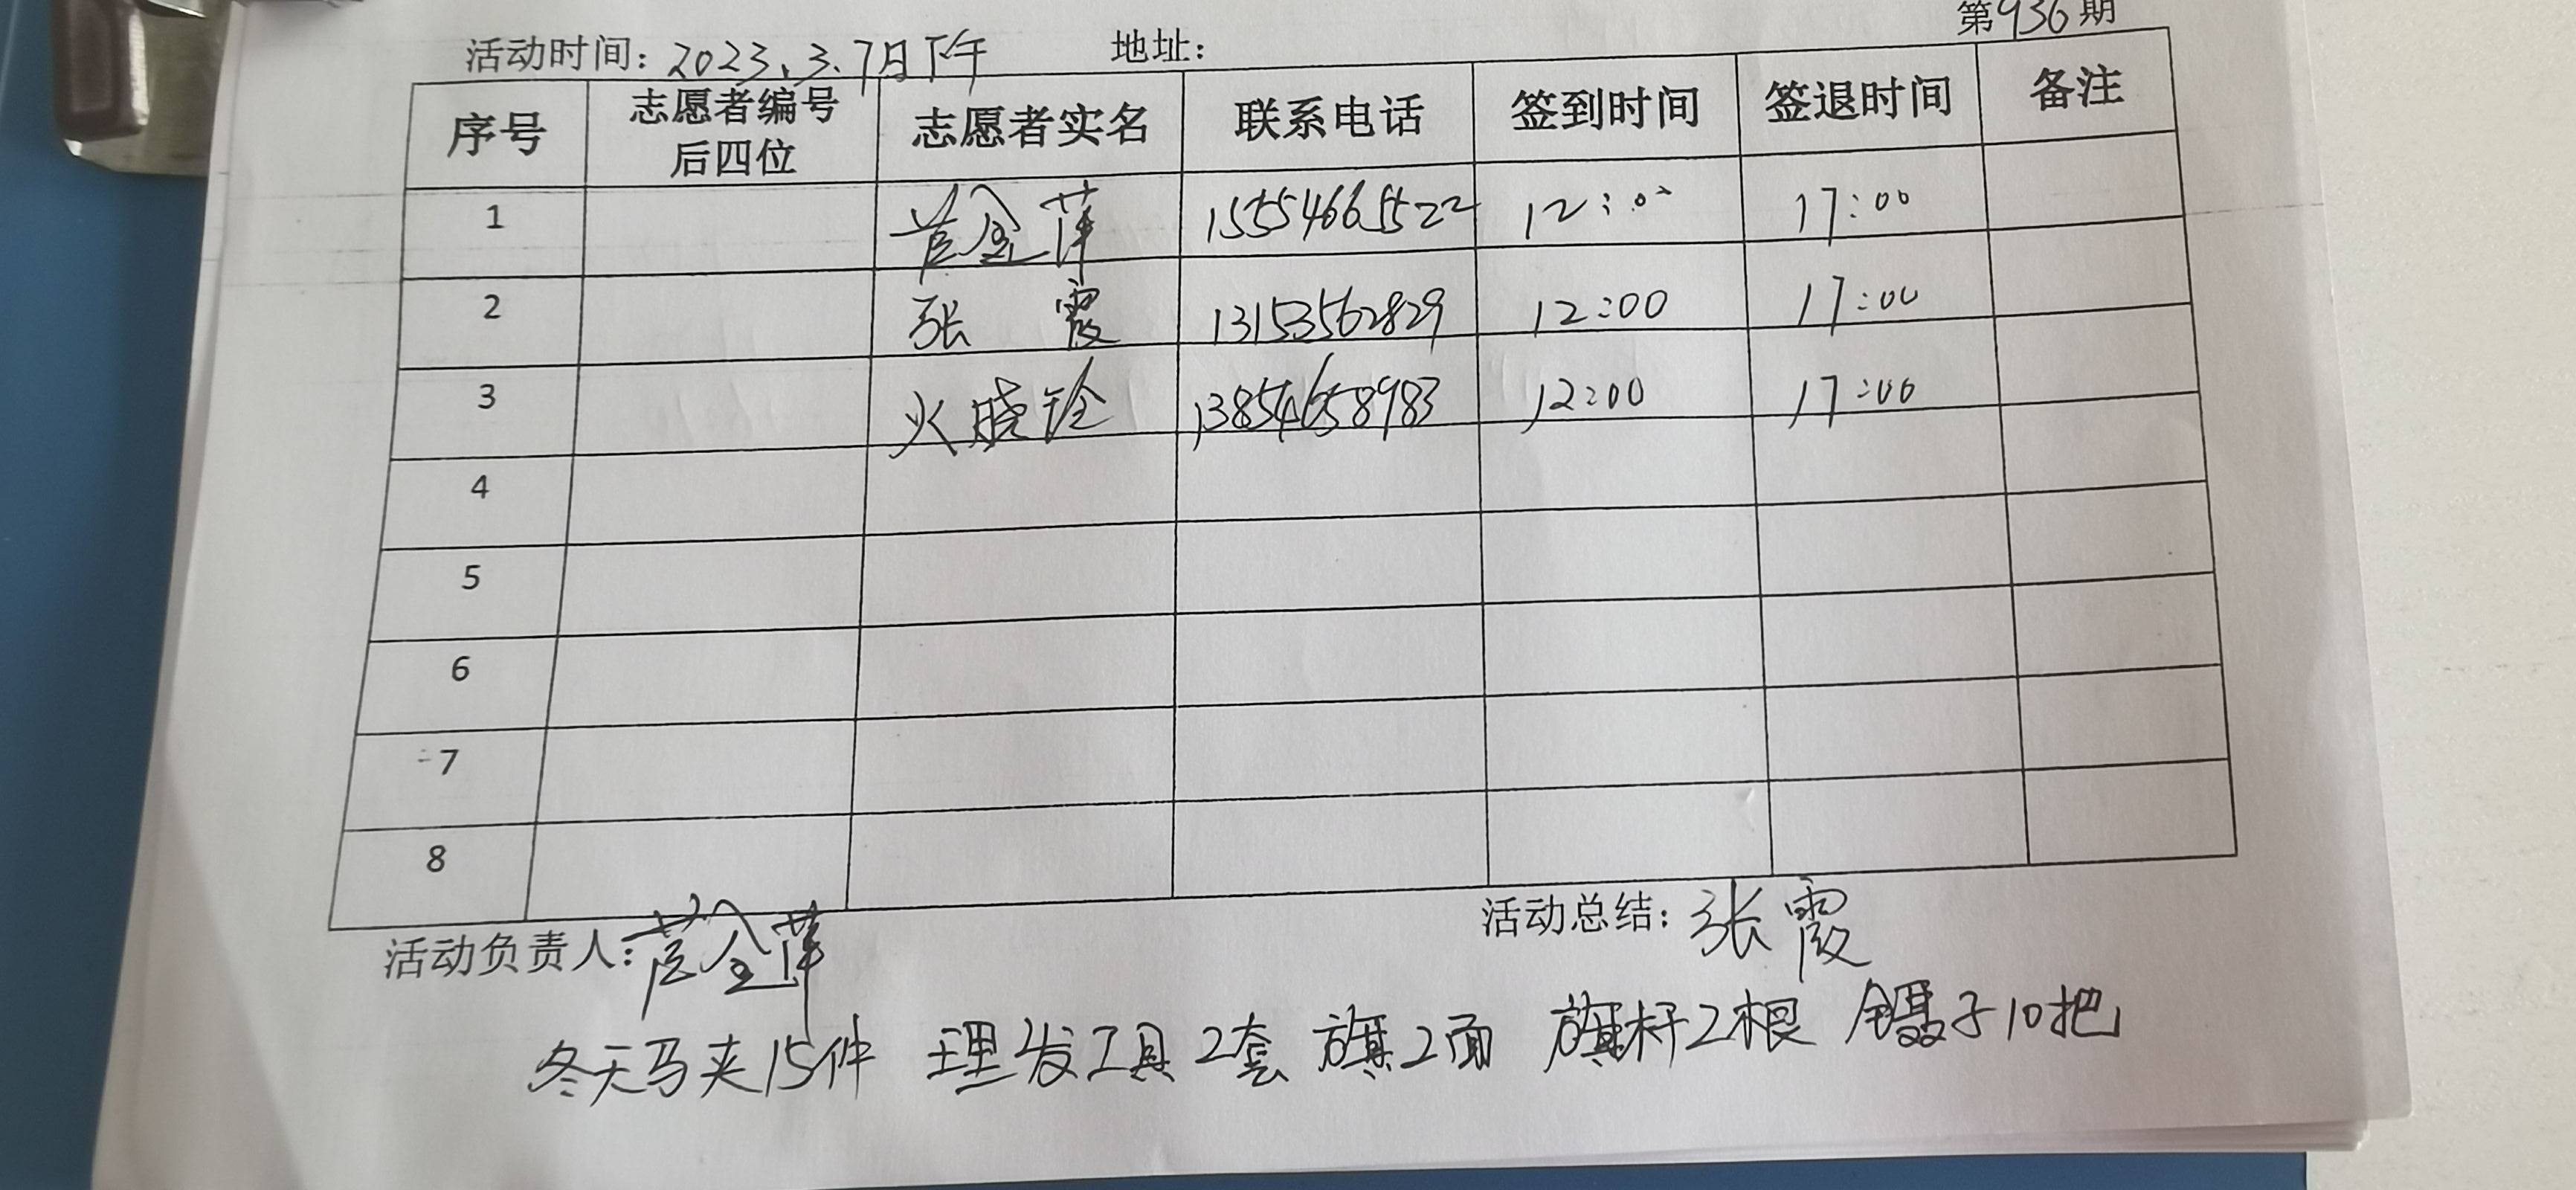 第936期
活动时间：2023.3.7日下午 地址：
序号 志愿者编号后四位 志愿者实名 联系电话 签到时间 签退时间 备注
1 金萍 15554665522 12:00 17:00
2 张霞 13153562829 12:00 17:00
3 晓铨 13854658983 12:00 17:00
4
5
6
7
8
活动负责人：金萍 活动总结：张霞
冬天马夹15件 理发工具2套 旗2面 旗杆2根 镊子10把